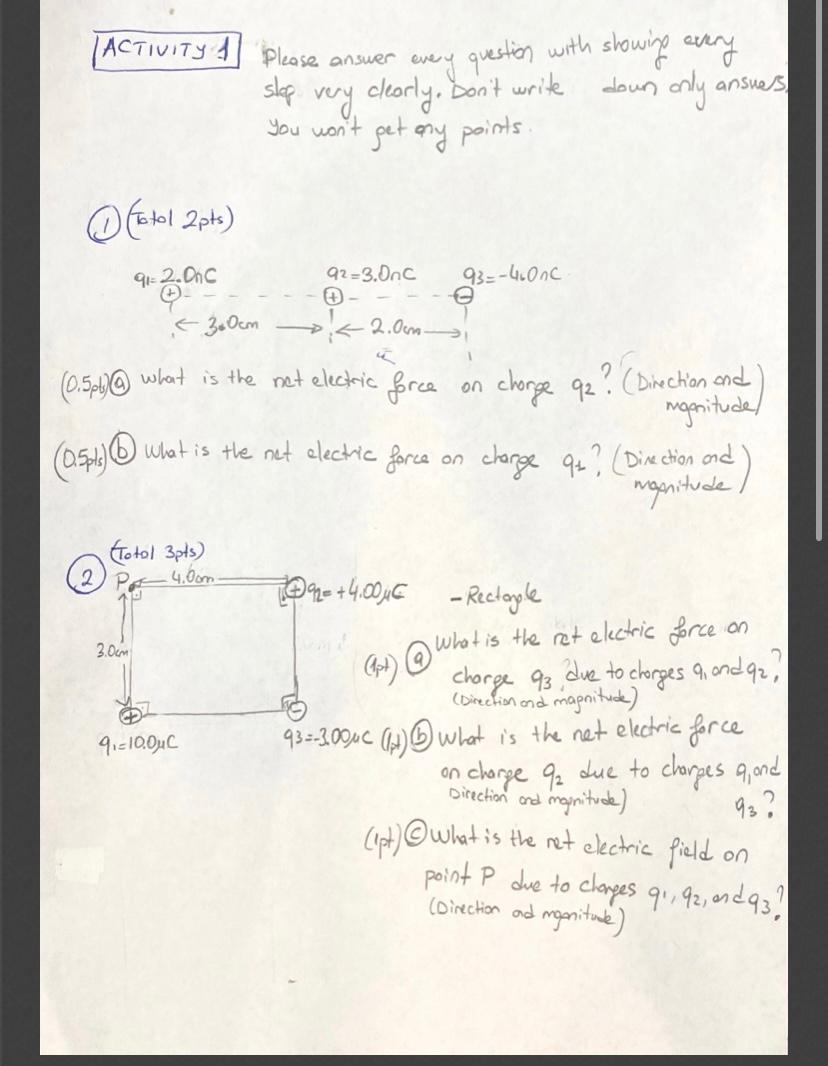 ACTIVITY 1
Please answer every question with showing every
step very clearly. Don't write down only answers,
You won't get any points.
① (Total 2pts)
q1= 2.0nC q2=3.0nC q3=-4.0nC
3.0cm 2.0cm
(0.5pts) ⓐ What is the net electric force on charge q2? (Direction and
magnitude)
(0.5pts) ⓑ What is the net electric force on charge q1? (Direction and
magnitude)
② (Total 3pts)
P 4.0cm q2= +4.00μC - Rectangle
3.0cm
(1pt) ⓐ What is the net electric force on
charge q3 due to charges q1 and q2?
(Direction and magnitude)
q1=10.0μC q3=-3.00μC (1pt) ⓑ What is the net electric force
on charge q2 due to charges q1 and
q3?
Direction and magnitude)
(1pt) ⓒ What is the net electric field on
point P due to charges q1, q2, and q3?
(Direction and magnitude)